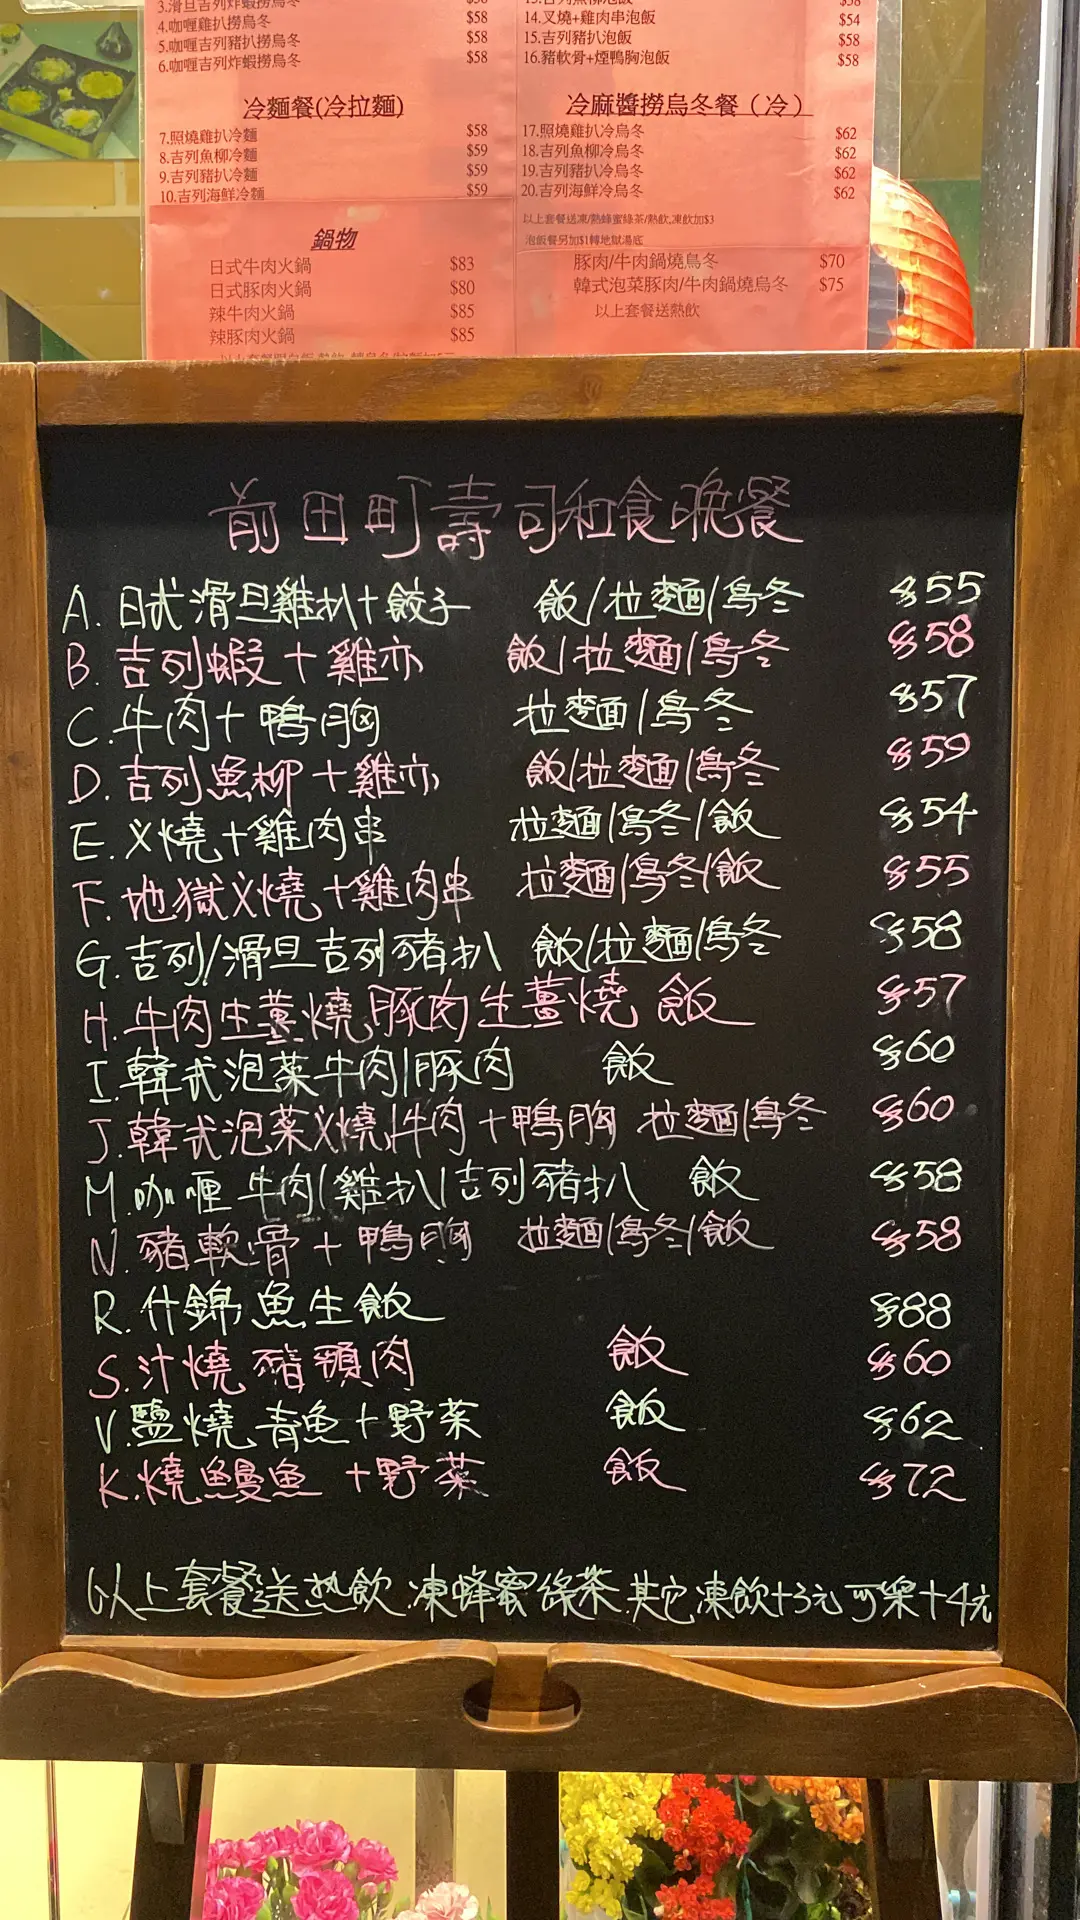 3.滑旦吉列炸蝦撈烏冬 $58
4.咖喱雞扒撈烏冬 $58
5.咖喱吉列豬扒撈烏冬 $58
6.咖喱吉列炸蝦撈烏冬 $58
冷麵餐(冷拉麵)
7.照燒雞扒冷麵 $58
8.吉列魚柳冷麵 $59
9.吉列豬扒冷麵 $59
10.吉列海鮮冷麵 $59
鍋物
日式牛肉火鍋 $83
日式豚肉火鍋 $80
辣牛肉火鍋 $85
辣豚肉火鍋 $85
13.吉列魚柳泡飯 $58
14.叉燒+雞肉串泡飯 $54
15.吉列豬扒泡飯 $58
16.豬軟骨+煙鴨胸泡飯 $58
冷麻醬撈烏冬餐（冷）
17.照燒雞扒冷烏冬 $62
18.吉列魚柳冷烏冬 $62
19.吉列豬扒冷烏冬 $62
20.吉列海鮮冷烏冬 $62
以上套餐送凍/熱蜂蜜綠茶/熱飲,凍飲加$3
泡飯餐另加$1轉地獄湯底
豚肉/牛肉鍋燒烏冬 $70
韓式泡菜豚肉/牛肉鍋燒烏冬 $75
以上套餐送熱飲
前田町壽司和食晚餐
A.日式滑旦雞扒+餃子 飯/拉麵/烏冬 $55
B.吉列蝦+雞亦 飯/拉麵/烏冬 $58
C.牛肉+鴨胸 拉麵/烏冬 $57
D.吉列魚柳+雞亦 飯/拉麵/烏冬 $59
E.义燒+雞肉串 拉麵/烏冬/飯 $54
F.地獄义燒+雞肉串 拉麵/烏冬/飯 $55
G.吉列/滑旦吉列豬扒 飯/拉麵/烏冬 $58
H.牛肉生薑燒,豚肉生薑燒 飯 $57
I.韓式泡菜牛肉/豚肉 飯 $60
J.韓式泡菜义燒/牛肉+鴨胸 拉麵/烏冬 $60
M.咖喱牛肉/雞扒/吉列豬扒 飯 $58
N.豬軟骨+鴨胸 拉麵/烏冬/飯 $58
R.什錦魚生飯 $88
S.汁燒豬頸肉 飯 $60
V.鹽燒青魚+野菜 飯 $62
K.燒鰻魚+野菜 飯 $72
以上套餐送热飲.凍蜂蜜綠茶.其它凍飲+3元可樂+4元